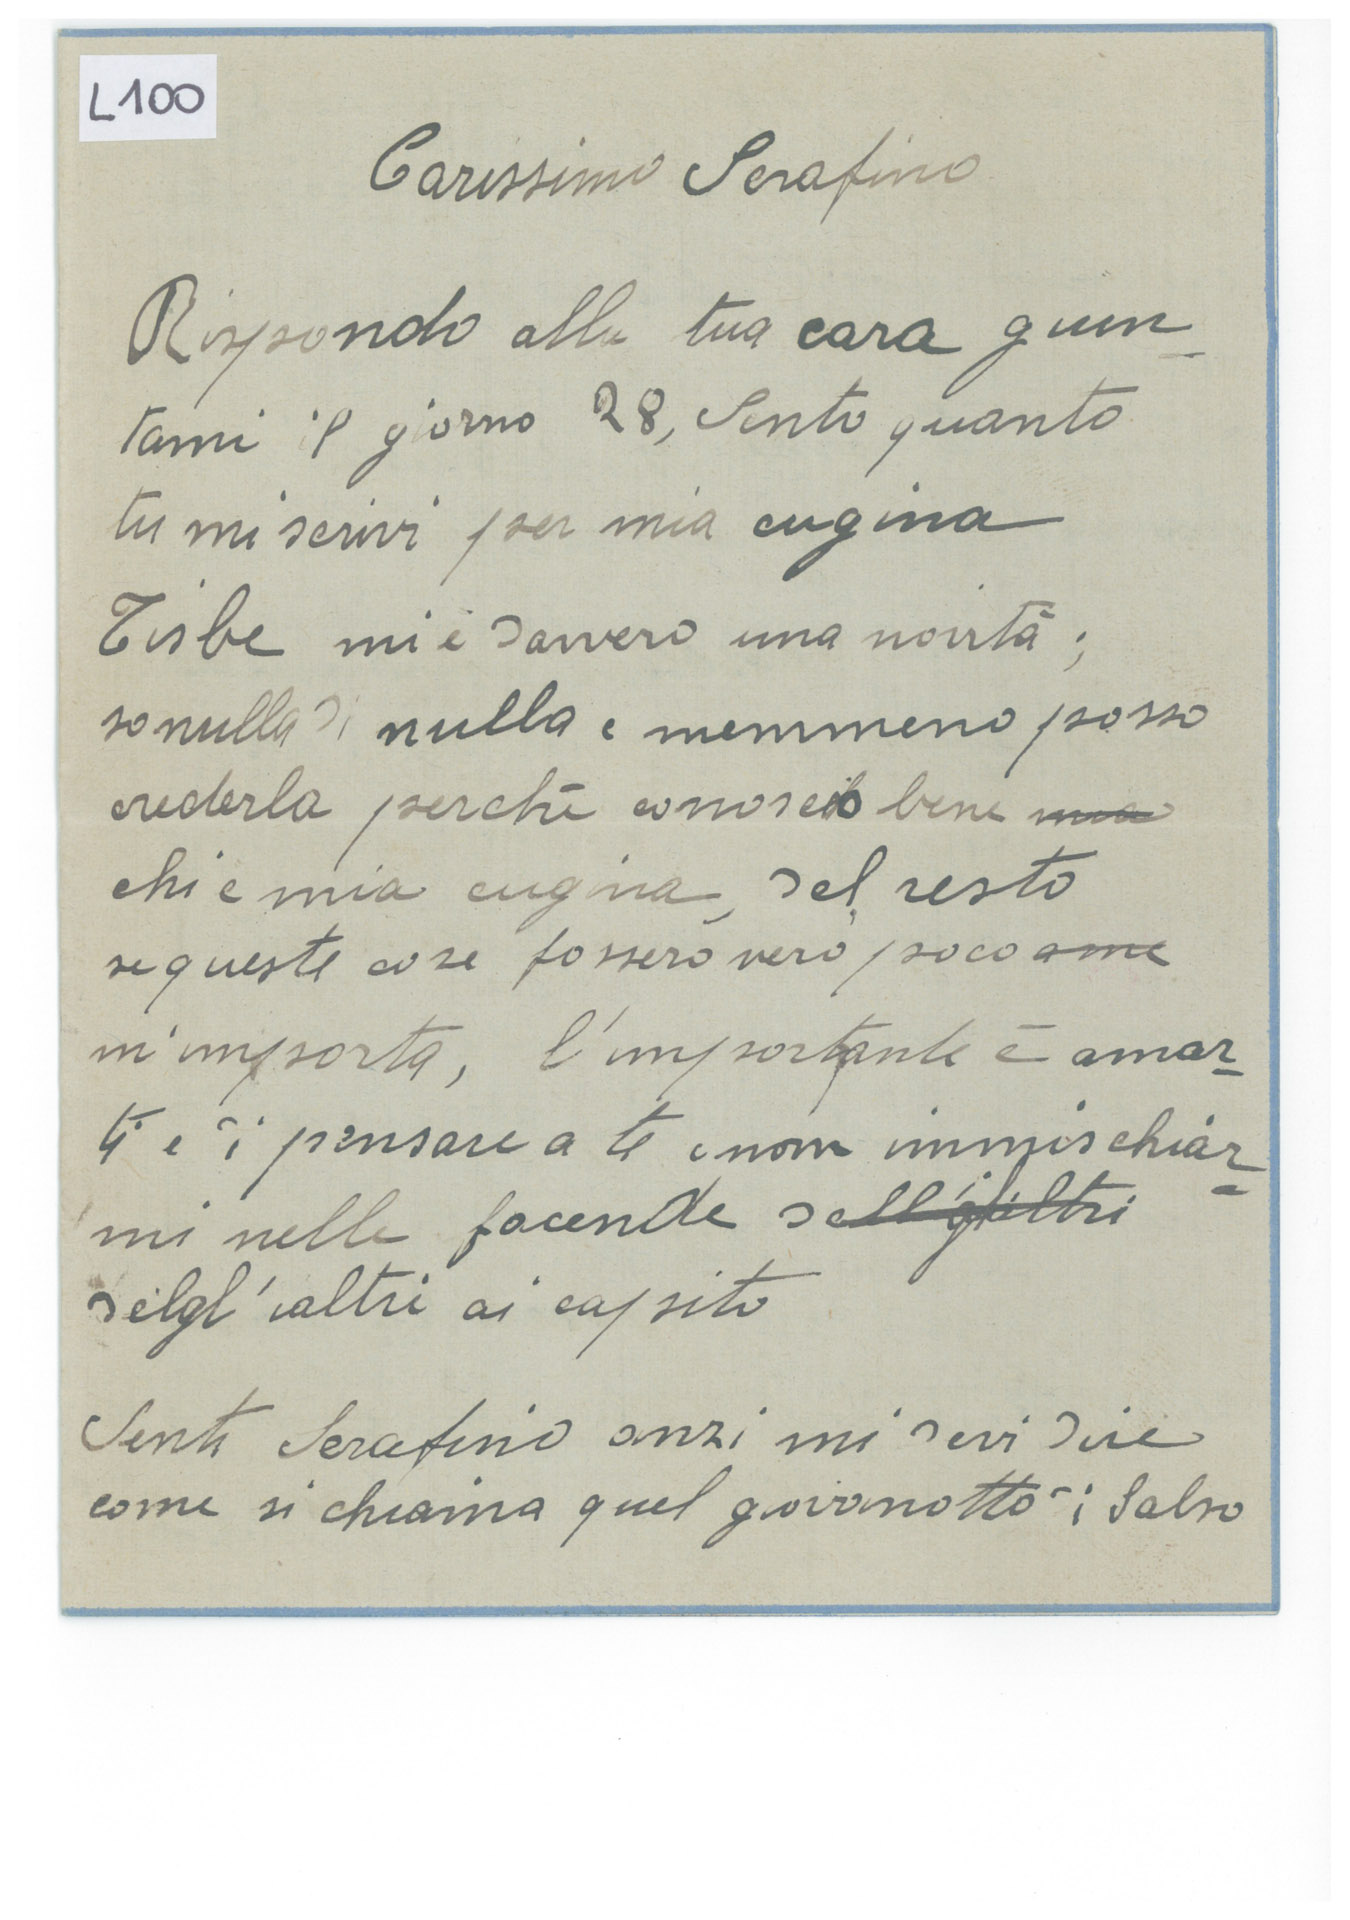 L100
Carissimo Serafino
Rispondo alla tua cara giun-
tami il giorno 28, Sento quanto
tu mi scrivi per mia cugina
Tisbe mi è davvero una novità;
so nulla di nulla e memmeno posso
crederla perchè conoscio bene
chi e mia cugina, del resto
se queste cose fossero vero poco
m'importa, l'importante è amar-
ti e di pensare a te e non immischiar-
mi nelle facende dell'gli altri
delgl'ialtri ai capito
Senti Serafino anzi mi devi dire
come si chiama quel giovanotto di Salso